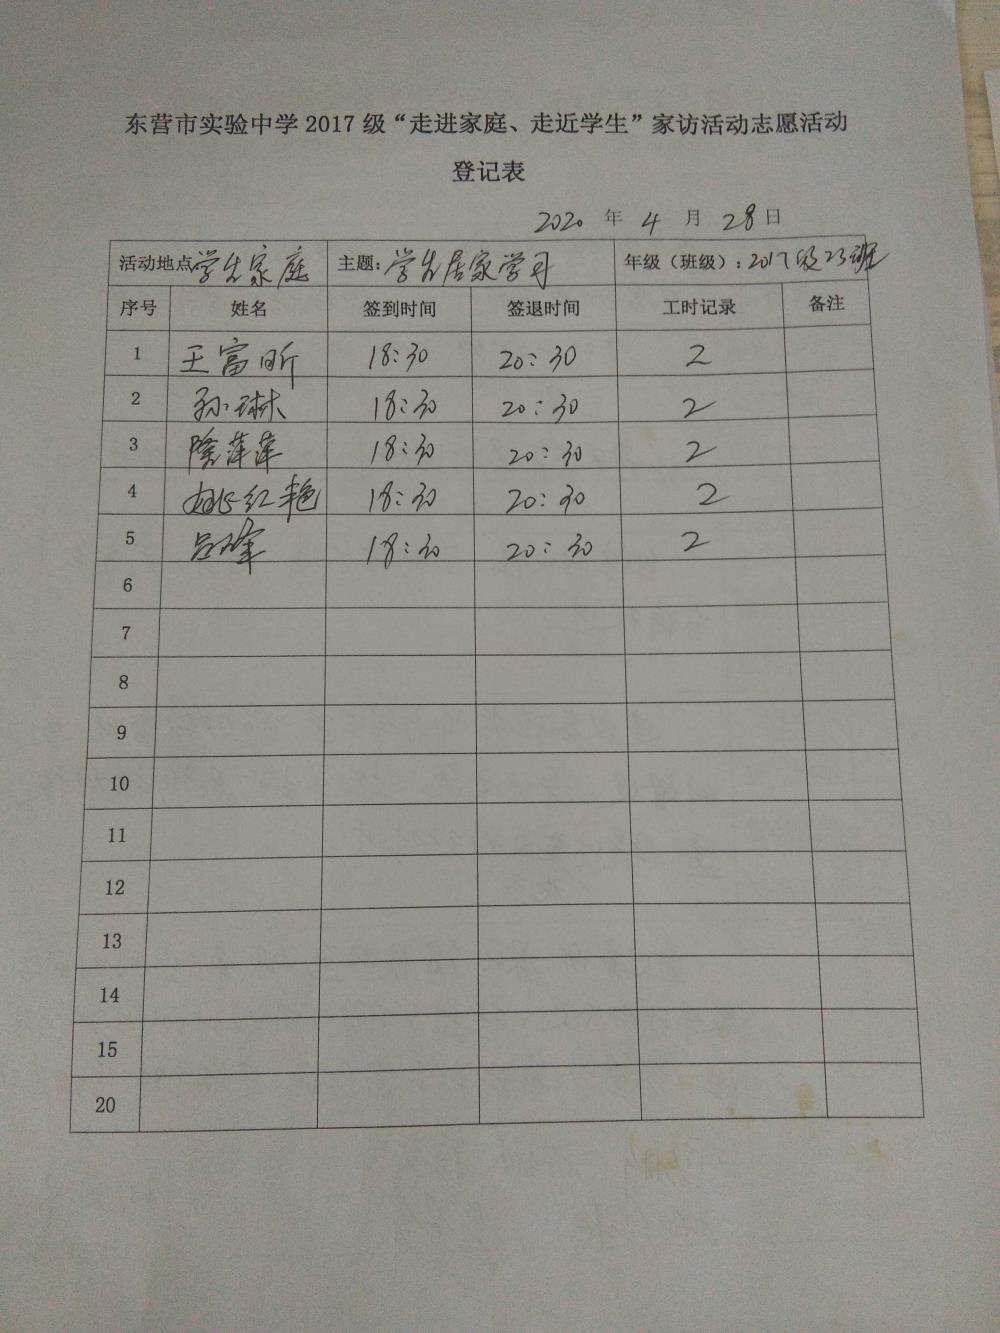 东营市实验中学 2017 级“走进家庭、走近学生”家访活动志愿活动
登记表
2020 年 4 月 28 日
活动地点 学生家庭 主题: 学生居家学习 年级（班级）: 2017级23班
序号 姓名 签到时间 签退时间 工时记录 备注
1 王富昕 18:30 20:30 2
2 孙琳 18:30 20:30 2
3 隆萍萍 18:30 20:30 2
4 姚红艳 18:30 20:30 2
5 吕峰 18:30 20:30 2
6
7
8
9
10
11
12
13
14
15
20